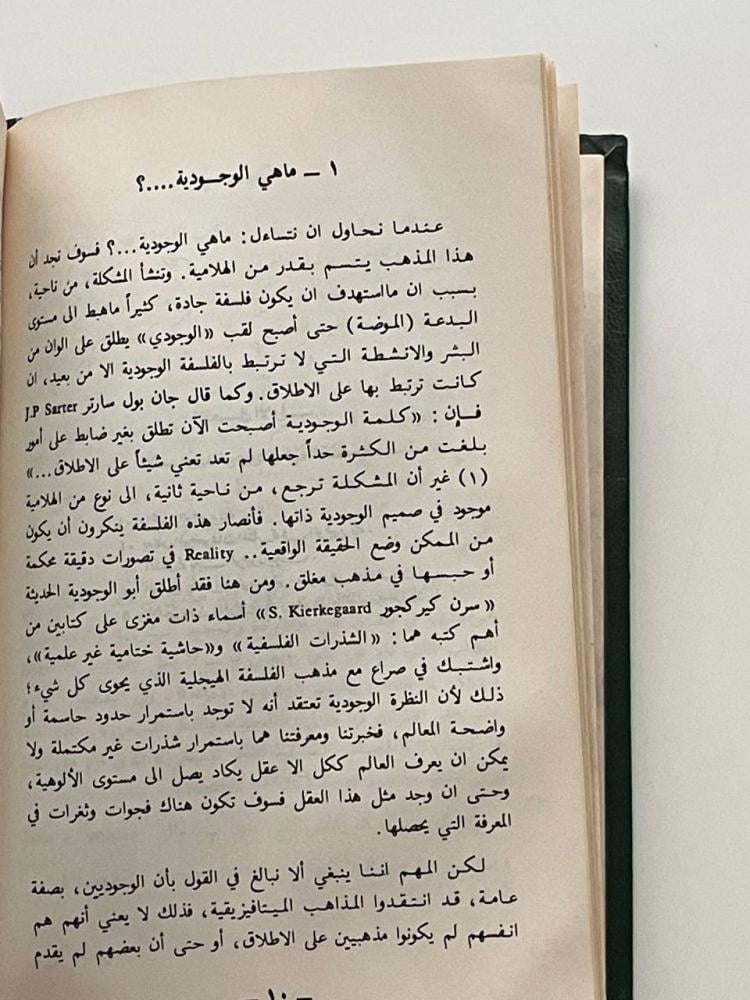 ١ ــ ماهي الوجـودية....؟
عـندمـا نـحاول ان نتساءل: ماهي الوجودية...؟ فسوف نجد أن
هـذا المذهب يـتـسم بـقـدر مـن الهلامية. وتنشأ المشكلة، من ناحية،
بسبب ان مااستهدف ان يكون فلسفة جادة، كثيراً ماهبط الى مستوى
الـبدعـة (الموضة) حتى أصبح لقب «الوجودي» يطلق على الوان من
البشر والانشطة التـي لا ترتـبط بالفلسفة الوجودية الا من بعيد، ان
كـانـت ترتبط بها على الاطلاق. وكما قال جان بول سارتر J.P Sarter
فـإن: «كـلـمة الـوجـوديـة أصـبحت الآن تطلق بغير ضابط على أمور
بـلغت مـن الكـثـرة حداً جعلها لم تعد تعني شيئاً على الاطلاق...»
(١) غير أن المشـكـلـة تـرجـع، مـن ناحية ثانية، الى نوع من الهلامية
موجود في صميم الوجودية ذاتها. فأنصار هذه الفلسفة ينكرون أن يكون
من المـمكن وضع الحقيقة الواقعية.. Reality في تصورات دقيقة محكمة
أو حـبـسـهـا في مـذهب مغلق. ومن هنا فقد أطلق أبو الوجودية الحديثة
«سرن كيركجور S. Kierkegaard» أسماء ذات مغزى على كتابين من
أهم كتبه هما: «الشذرات الفلسفية» و«حاشية ختامية غير علمية»،
واشتـبـك في صراع مع مذهب الفلسفة الهيجلية الذي يحوى كل شيء؛
ذلـك لأن النظرة الوجودية تعتقد أنه لا توجد باستمرار حدود حاسمة أو
واضـحـة المعالم، فخبرتنا ومعرفتنا هما باستمرار شذرات غير مكتملة ولا
يمكن ان يعرف العالم ككل الا عقل يكاد يصل الى مستوى الألوهية،
وحـتـى ان وجد مثل هذا العقل فسوف تكون هناك فجوات وثغرات في
المعرفة التي يحصلها.
لـكـن المـهم اننـا ينبغي ألا نبالغ في القول بأن الوجوديين، بصفة
عـامـة، قـد انـتـقـدوا المذاهب الميـتافيزيقية، فذلك لا يعني أنهم هم
انفسهم لم يكونوا مذهبيين على الاطلاق، أو حتى أن بعضهم لم يقدم
ــ ١٠ ــ